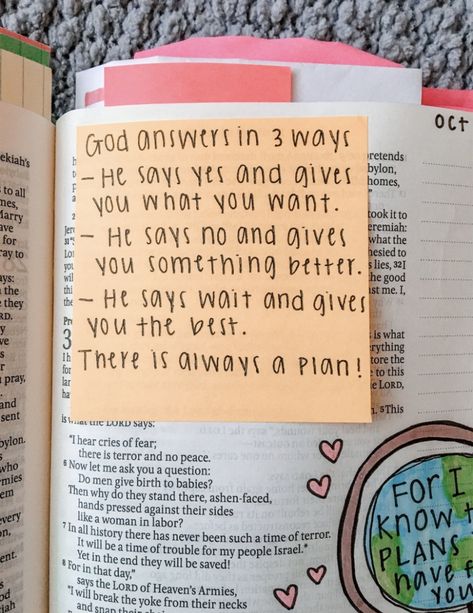 Oct
God answers in 3 ways
- He says yes and gives
you what you want.
- He says no and gives
you something better.
- He says wait and gives
you the best.
There is always a plan!
ekiah's
to all
mes,
Marry
have
for
ray to
ys:
the
they
RD.
pray,
and
sent
bylon.
who
rmies
em
every
on,
and
pretends
bylon,
homes,
took it to
eremiah:
what the
hesied to
s lies, 32 I
the good
nst me. I,
is what
everything
tore the
to this
LORD,
5 This
is what the LORD says:
"I hear cries of fear;
there is terror and no peace.
6 Now let me ask you a question:
Do men give birth to babies?
Then why do they stand there, ashen-faced,
hands pressed against their sides
like a woman in labor?
7 In all history there has never been such a time of terror.
It will be a time of trouble for my people Israel.*
Yet in the end they will be saved!
8 For in that day,"
says the LORD of Heaven's Armies,
"I will break the yoke from their necks
and snap their
For I
know t
PLANS
have f
you